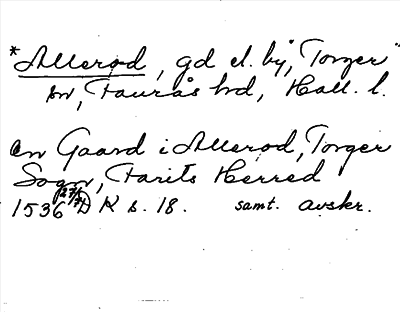 *Allerød, gd el. by, "Torger"
sn, Faurås hd, Hall. l.
En Gaard i Allerød, Torger
Sogn, Farits Herred
1536 27/5 D K s. 18. samt. avskr.